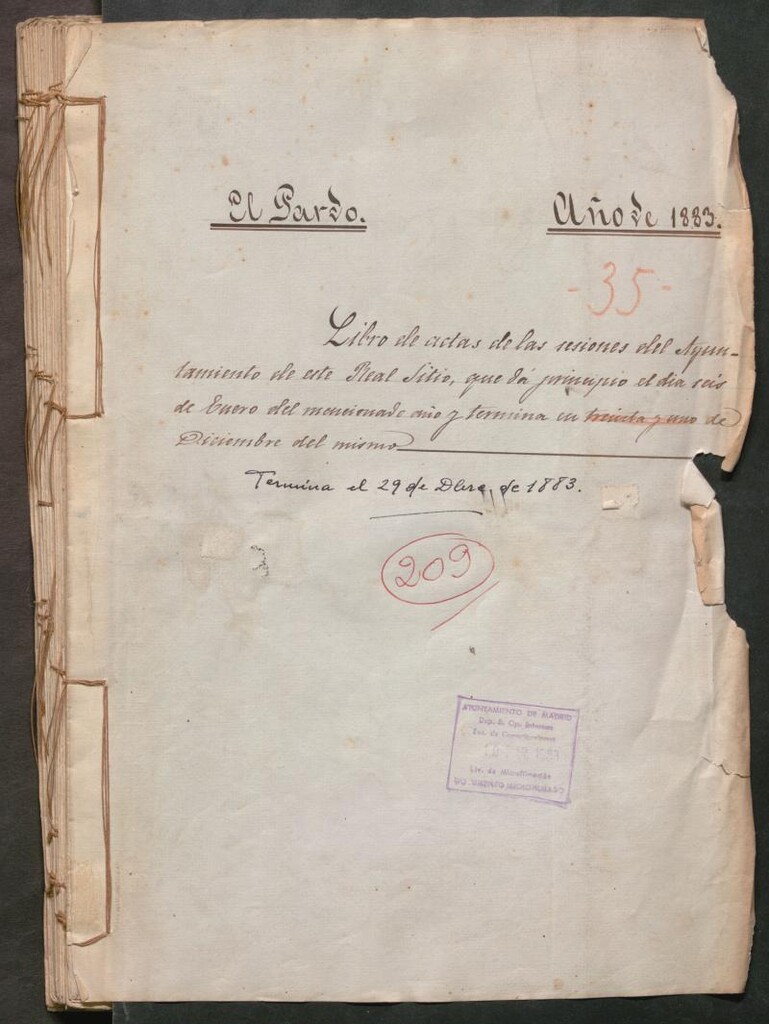 El Pardo.
Año de 1883.
- 35 -
Libro de actas de las sesiones del Ayun-
tamiento de este Real Sitio, que dá principio el dia seis
de Enero del mencionado año y termina en treinta y uno de
Diciembre del mismo
Termina el 29 de Dbre, de 1883.
209
AYUNTAMIENTO DE MADRID
DOCUMENTO MICROFILMADO